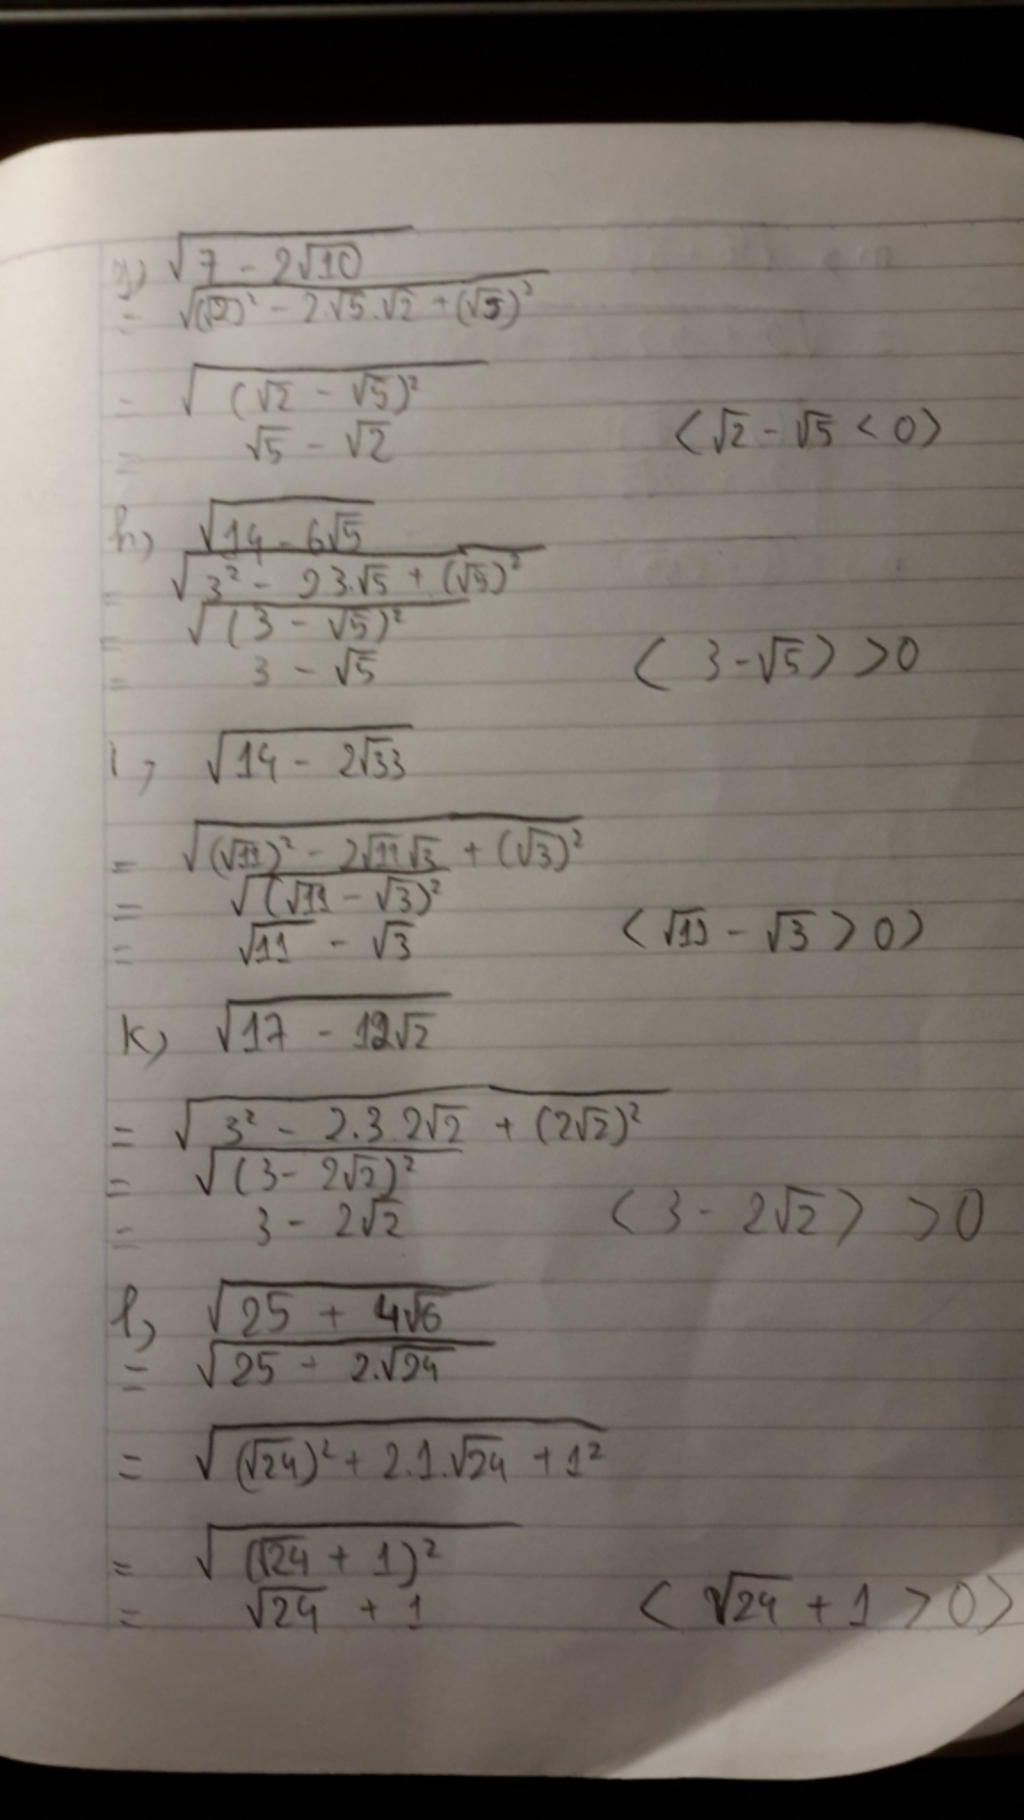 g) √(7 - 2√10)
= √((√2)² - 2.√5.√2 + (√5)²)
= √((√2 - √5)²)
= √5 - √2 <√2 - √5 < 0>
h) √(14 - 6√5)
= √(3² - 2 3.√5 + (√5)²)
= √((3 - √5)²)
= 3 - √5 <3 - √5> > 0
i, √(14 - 2√33)
= √((√11)² - 2√11√3 + (√3)²)
= √((√11 - √3)²)
= √11 - √3 <√11 - √3 > 0>
k) √(17 - 12√2)
= √(3² - 2.3 2√2 + (2√2)²)
= √((3 - 2√2)²)
= 3 - 2√2 <3 - 2√2> > 0
l, √(25 + 4√6)
= √(25 + 2.√24)
= √((√24)² + 2.1.√24 + 1²)
= √((√24 + 1)²)
= √24 + 1 <√24 + 1 > 0>